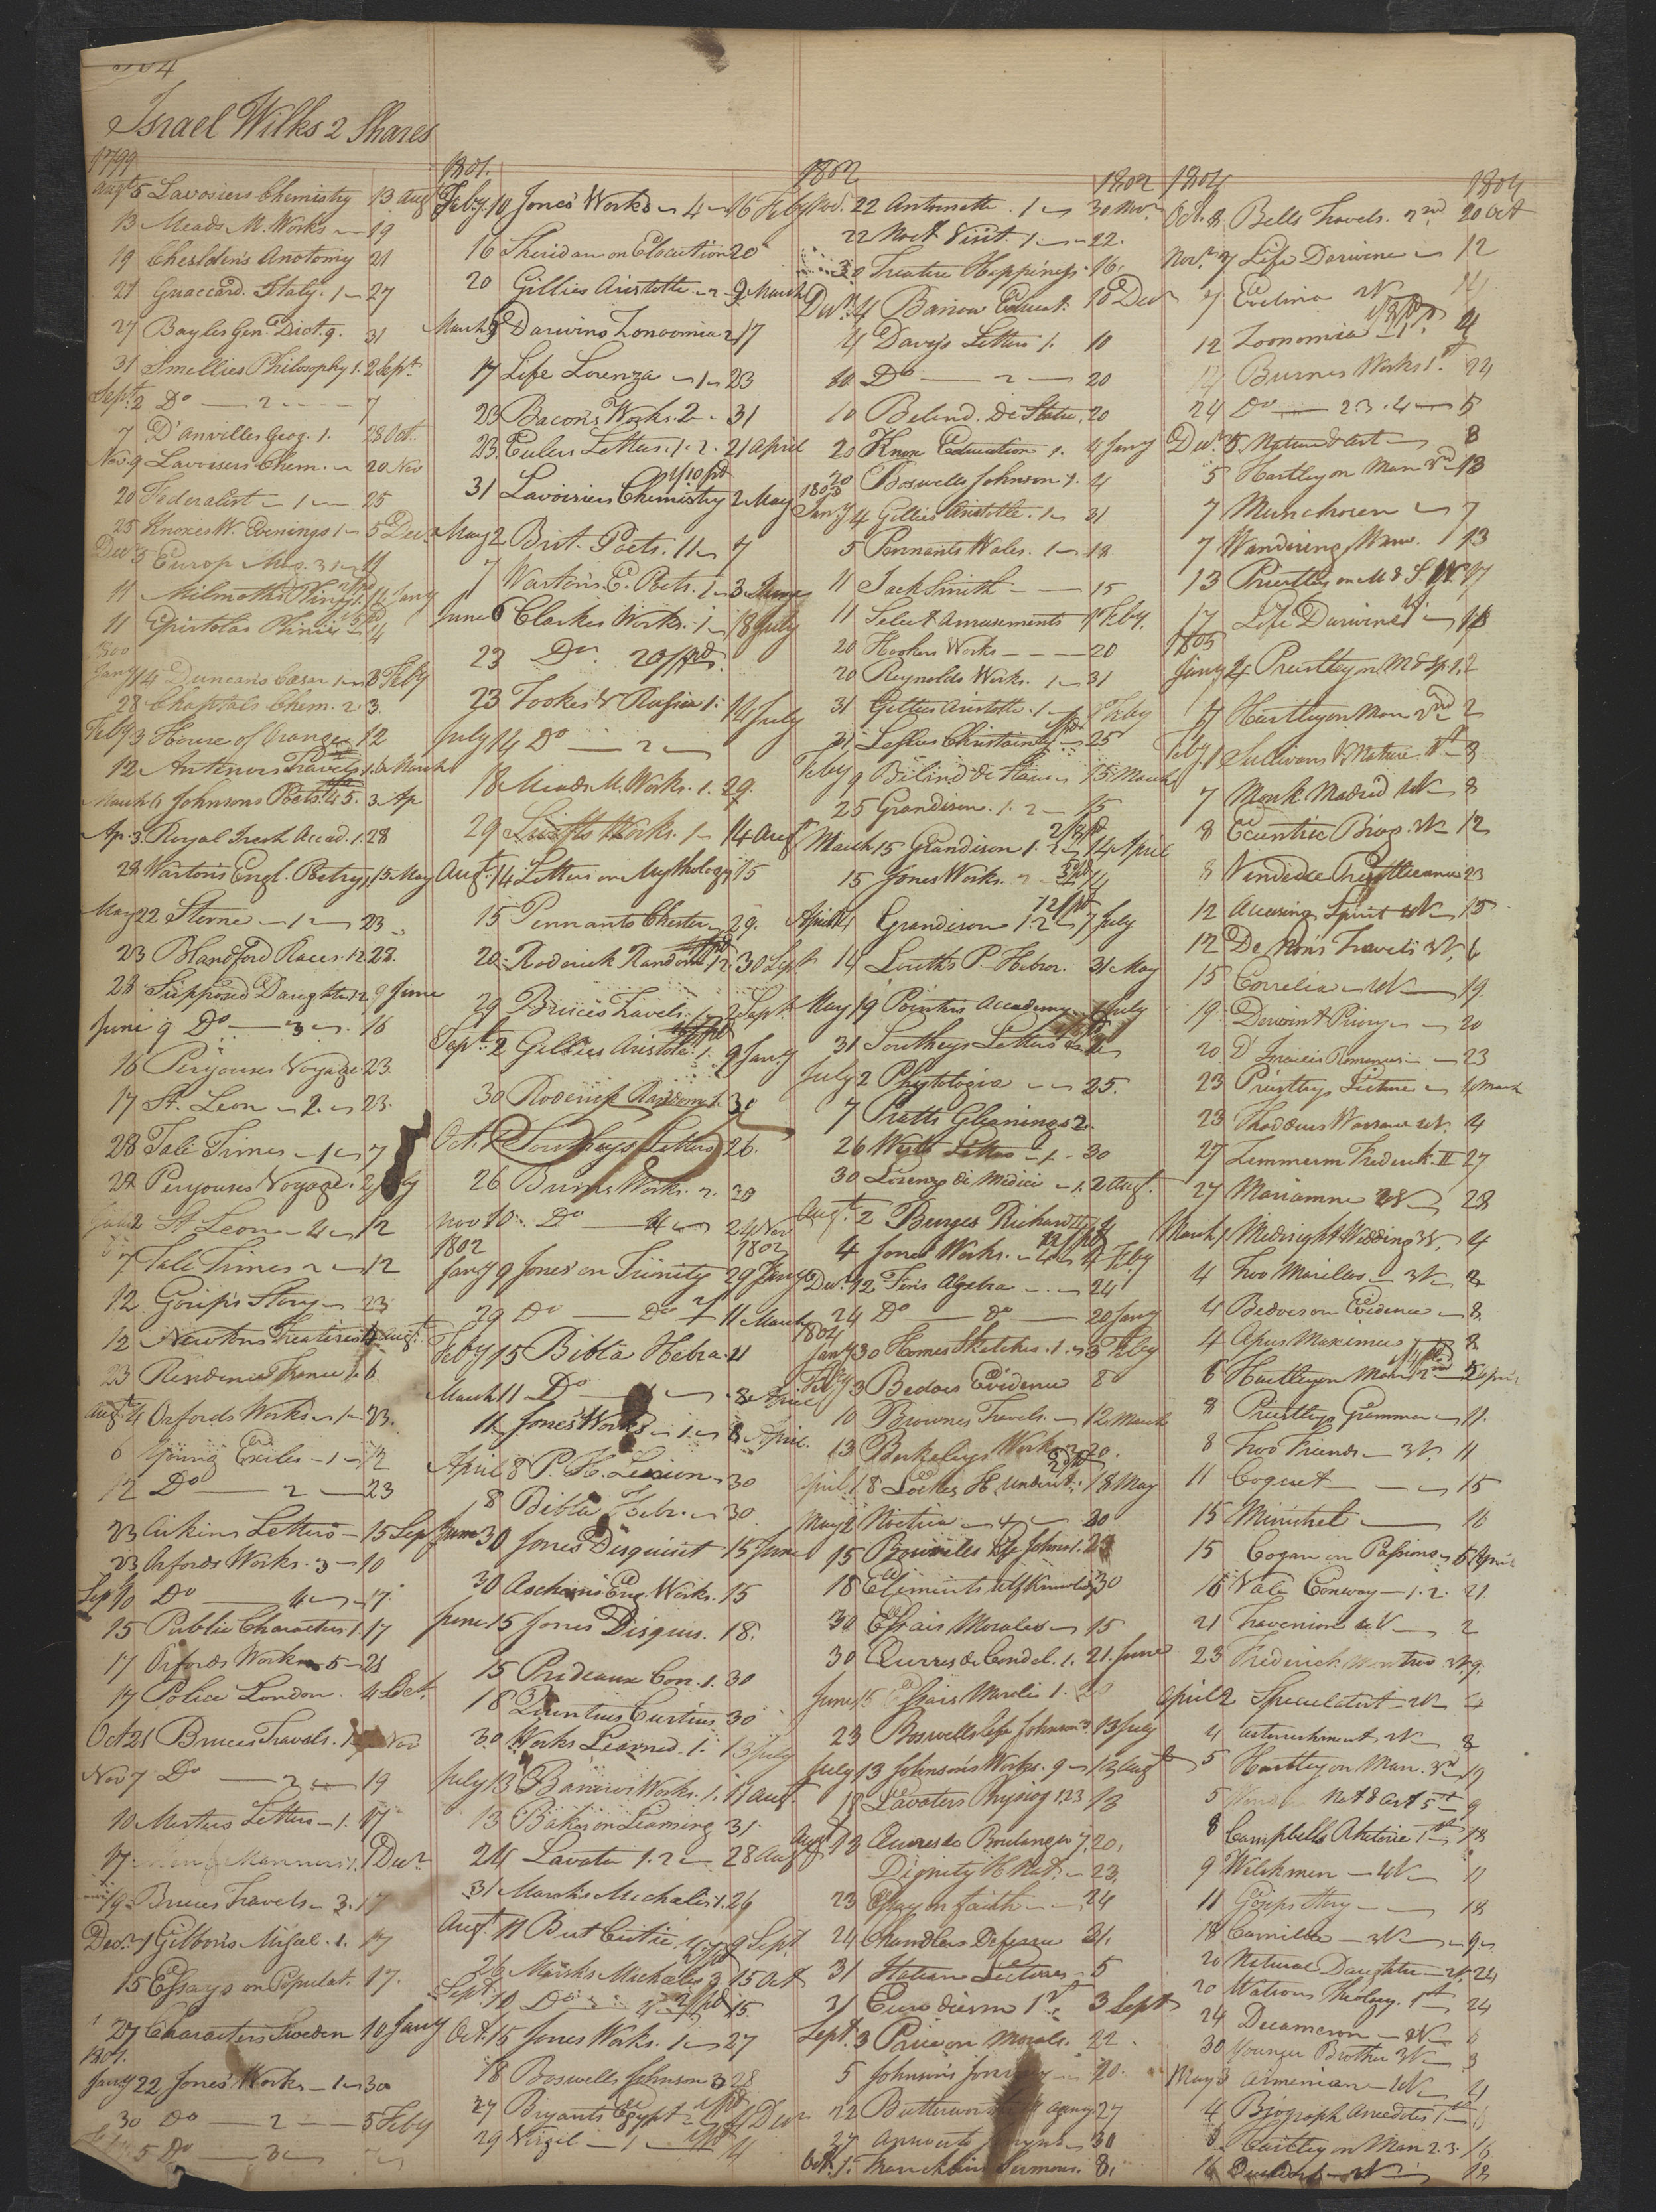 Israel Wilks 2 Shares
1799
Augt 5 Lavosiers Chemistry 13 Aug
13 Meads M. Works 19
19 Cheslden's Anotomy 21
21 Guaccard. Italy. 1 27
27 Bayles Gen. Dict. 9. 31
31 Smellies Philosophy 1. 2 Sept
Sept 2 Do 2 7
7 D'anvilles Geog. 1. 28 Oct.
Nov. 9 Lavoisers Chem. 20 Nov
20 Federalist 1 25
25 Knoxes W. Evenings 1 5 Decr
Decr 5 Europ Mag. 31 11
11 Milmoths Pliny 1. 11 Jany
11 Epistolas Plinii 14
Jany 14 Duncans Cæsar 1 3 Feby
28 Chaptals Chem. 2 3.
Feby 3 House of Orange 12
12 Antenors Travels 1. 6 March
March 6 Johnsons Poets. 45. 3 Ap
Ap. 3 Royal Irash Accad. 1. 28
28 Wartons Engl. Poetry 1. 15 May
May 22 Sterne 1 23
23 Blandford Races. 1.2 28.
28 Supposed Daughter 1.2 9 June
June 9 Do 3 16
16 Peryouses Voyage 23.
17 St. Leon 2. 23.
28 Tale Times 1 7
28 Peryouses Voyage. 2 July
July 2 St Leon 4 12
7 Tale Times 2 12
12 Gosips Story 23
12 Newtons Treatires 4 Augt
23 Residence France 1. 6
Augt 4 Orfords Works 1 23.
6 Young Exiles 1 12
12 Do 2 23
23 Aikins Letters 15 Sep
23 Orfords Works. 3 10
Sep 10 Do 4 17
15 Public Characters 1. 17
17 Orfords Works 5 21
17 Police London. 4 Oct.
Oct 21 Bruces Travels. 1 Nov
Nov 7 Do 2 19
10 Mertus Letters 1. 17
17 Men & Manners 1. 1 Decr
19 Bruces Travels 3. 17
Decr 1 Gibbons Misal. 1. 17
15 Essays on Populat. 17.
27 Characters Sweden 10 Jany
1801.
Jany 22 Jones Works 1 30
30 Do 2 5 Feby
5 Do 3
1801.
Feby 10 Jones Works 4 16 Feby
16 Sheridan on Elocution 20
20 Gillies Aristotle 2 9 March
March 9 Darwins Zonoomia 2 17
17 Life Lorenza 1 23
23 Bacons Works. 2 31
23. Eulers Letters. 1. 2. 21 April
31 Lavoisiers Chemistry 2 May
May 2 Brit. Poets. 11 7
7 Warton's E. Poets. 1 3 June
June 6 Clarkes Works. 1 18 July
23 Do. 2
23 Tookes V Russia 1. 14 July
July 14 Do 2
18 Meads M. Works. 1. 29.
29 Swifts Works. 1 14 Augt
Augt 14 Letters on Mythology 15
15 Pennants Chester 29.
20 Roderick Random 1.2. 30 Sept
29 Bruces Travels. 1 2 Sept.
Sept. 2 Gillies Aristotle. 1. 9 Jany
30 Roderick Random 1. 30
Oct. 1 Southeys Letters 26.
26 Burns Works. 2. 30
Nov 10 Do 4 24 Nov
1802 1802
Jany 9 Jones on Trinity 29 Jany
29 Do Do 11 March
Feby 15 Biblia Hebra. 11
March 11 Do 8 April
11 Jones Works 1. 8 April.
April 8 P. H. Lexicon 30
8 Biblia Hebr. 30
June 30 Jones Disquisit 15 June
30 Aschams Eng. Works. 15
June 15 Jones Disquis. 18.
15 Prideaux Con. 1. 30
18 Quintius Curtius 30
30 Works Learned. 1. 13 July
July 13 Barrows Works. 1. 11 Augt.
13 Baker on Learning 31.
24 Lavater 1. 2 28 Aug
31 Marshs Michalis 1. 26
Augt 11 Brit Critic 9 Sept.
26 Marshs Michalis 3 15 Oct
Sept. 10 Do 4 15.
Oct. 15 Jones Works. 1 27
18 Boswells Johnson 3 28
27 Bryants Egypt 1 Decr
29 Virgil 1 4
1802 1802
Nov. 22 Antoinette. 1 30 Novr
22 Noct. Visit. 1 22.
30 Treatise Happiness. 16.
Decr 4 Barrow Educat. 10 Decr
4 Davys Letters 1. 10
10 Do 2 20
10 Belind. De Stale. 20
20 Knox Education 1. 4 Jany
20 Boswells Johnson 1. 4
1803
Jany 4 Gillies Aristotle. 1 31
5 Pennants Wales. 1 18
11 Jack Smith 15
11 Select Amusements 1 Feby.
20 Hookers Works 20
20 Reynolds Works. 1 31
31 Gillies Aristotle. 1 Feby
31 Leslies Christianity 25
Feby 9 Belind de Staees 15 March
25 Grandison. 1. 2 15
March 15 Grandison 1. 2 14 April
15 Jones Works. 2 14
April 14 Grandison 1. 2 7 July
14 Louths P. Hebror. 31 May
May 19 Pointers Accademy 1 July
31 Southeys Letters 2
July 2 Phytologia 25.
7 Pratts Gleanings 2.
26 Wests Letters 1. 30
30 Lorenzo di Medici 1. 2 Augt.
Augt. 2 Burges Richard 4
4 Jones Works. 4 4 Feby
Decr. 12 Fens Algebra 24
24 Do Do 20 Jany
1804
Jany 30 Homes Sketches. 1. 3 Feby
Feby 3 Bedoes Evidence 8
10 Brownes Travels. 12 March
13 Berkeleys Works 2 20.
April 18 Lockes H. Underst. 18 May
May 2 Noetica 4 30
15 Boswells Life Johns 1. 23
18 Elements self Knowledg 30
30 Essais Morales 15
30 Qurres de Condel. 1. 21. June
June 15 Essais Moralis 1. 23
23 Boswells Life Johnson 3. 13 July
July 13 Johnson's Works. 9 13 Augt
18 Lavaters Physiog 1.2.3 13
Augt 13 Euvres de Boulanger 7. 20.
Dignity H Nat. 23.
23 Essay on faith 24
24 Chandlers Defence 31.
31 Italian Lectures 5
31 Eurodisism 1st 3 Sept
Sept. 3 Price on Morals. 22
5 Johnson's Jor 20.
22 Butterworth 27
27 30
Oct. 1. Sermons. 8.
1804 1804
Oct. 8 Bells Travels. 2nd 20 Oct
Novr. 7 Life Darwine 12
7 Evelina 2 V 14
12 Zoonomia 1st 24
14 Burnes Works 1st. 24
24 Do 2 3. 4 5
Decr 5 Nature & art 8
5 Hartley on Man 3rd 13
7 Munchosen 7
7 Wandering Warw. 1 13
13 Priestley on M & S. 17
17 Life Darwine 18
1805
Jany 4 Priestley on M & Sp. 1. 2
17 Hartley on Man 2nd 2
Feby. 1 Sullivans V Nature 1st 8
7 Monk Madrid 8
8 Ecentric Biog. 2 V. 12
8 Vindicæ Priestleeanæ 23
12 Accusing Spirit 4 V 15
12 De Non's Travels 3 V. 6
15 Correlia 2 V 19.
19 Derwent Priory 20
20 D' Romance 23
23 Priestleys Lecture 4 March
23 Thaddeus Warsaw 4 V. 4
27 Zemmerm Frederick. II 27
27 Mariamne 2 V 28
March 1 Midnight Wedding 3 V. 4
4 Two Marillas 3 V 8
4 Bedoes on Evidence 8
4 Apus Maximus 8
6 Hartley on Man 2nd 5 April
8 Priestleys Grammer 11.
8 Two Friends 3 V. 11
11 Coquet 15
15 Minstrel 16
15 Cogan on Passions 5 April
16 Vale Conway 1. 2. 21
21 4 V 2
23 Frederick Montros 3 V. 9.
April 2 Speculatist 2 V 4
4 astonishment 2 V 8
5 Hartley on Man. 3rd 19
5 Nat & Art 5th 9
8 Campbells Rhetoric 1st 18
9 Welchmen 4 V 11
11 Gosips Story 18
18 Camilla 3 V 9
20 Natural Daughter 2 V. 24
20 Watsons Theology. 1st 24
24 Decameron 2 V 6
30 Younger Brother 2 V 3
May 3 Armenian 2 V 4
4 Biograph Anecdotes 1st 6
8 Hartley on Man 2. 3. 16
16 2 V 18